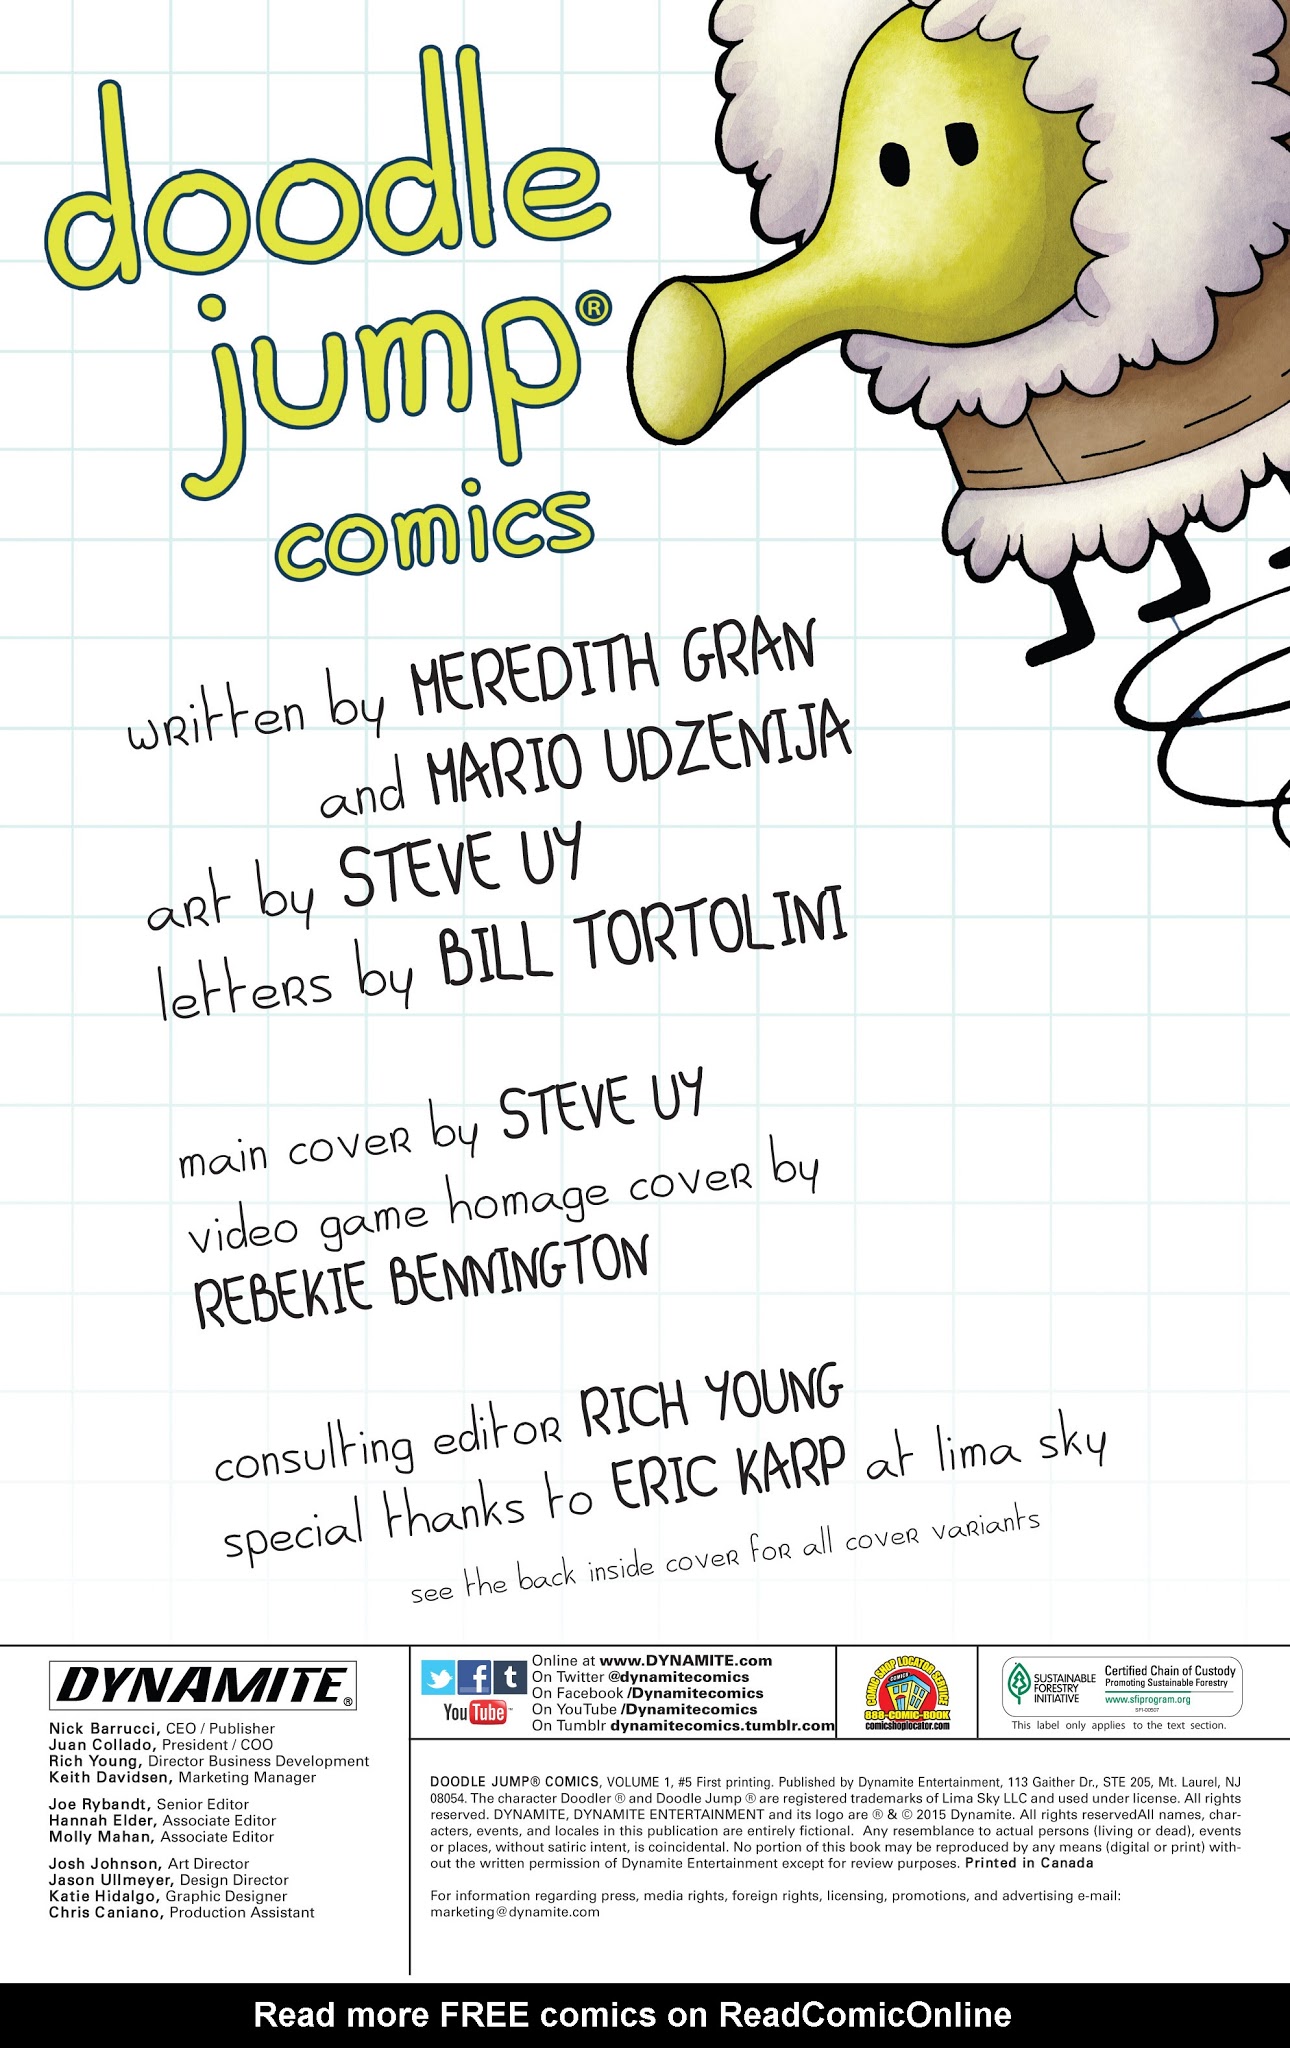 doodle
jump®
comics
written by MEREDITH GRAN
and MARIO UDZENIJA
art by STEVE UY
letters by BILL TORTOLINI
main cover by STEVE UY
video game homage cover by
REBEKIE BENNINGTON
consulting editor RICH YOUNG
special thanks to ERIC KARP at lima sky
see the back inside cover for all cover variants
DYNAMITE®
Nick Barrucci, CEO / Publisher
Juan Collado, President / COO
Rich Young, Director Business Development
Keith Davidsen, Marketing Manager
Joe Rybandt, Senior Editor
Hannah Elder, Associate Editor
Molly Mahan, Associate Editor
Josh Johnson, Art Director
Jason Ullmeyer, Design Director
Katie Hidalgo, Graphic Designer
Chris Caniano, Production Assistant
f t
YouTube
Online at www.DYNAMITE.com
On Twitter @dynamitecomics
On Facebook /Dynamitecomics
On YouTube /Dynamitecomics
On Tumblr dynamitecomics.tumblr.com
COMIC SHOP LOCATOR SERVICE
COMICS
888-COMIC-BOOK
comicshoplocator.com
SUSTAINABLE
FORESTRY
INITIATIVE
Certified Chain of Custody
Promoting Sustainable Forestry
www.sfiprogram.org
SFI-00507
This label only applies to the text section.
DOODLE JUMP® COMICS, VOLUME 1, #5 First printing. Published by Dynamite Entertainment, 113 Gaither Dr., STE 205, Mt. Laurel, NJ
08054. The character Doodler ® and Doodle Jump ® are registered trademarks of Lima Sky LLC and used under license. All rights
reserved. DYNAMITE, DYNAMITE ENTERTAINMENT and its logo are ® & © 2015 Dynamite. All rights reservedAll names, char-
acters, events, and locales in this publication are entirely fictional. Any resemblance to actual persons (living or dead), events
or places, without satiric intent, is coincidental. No portion of this book may be reproduced by any means (digital or print) with-
out the written permission of Dynamite Entertainment except for review purposes. Printed in Canada
For information regarding press, media rights, foreign rights, licensing, promotions, and advertising e-mail:
marketing@dynamite.com
Read more FREE comics on ReadComicOnline